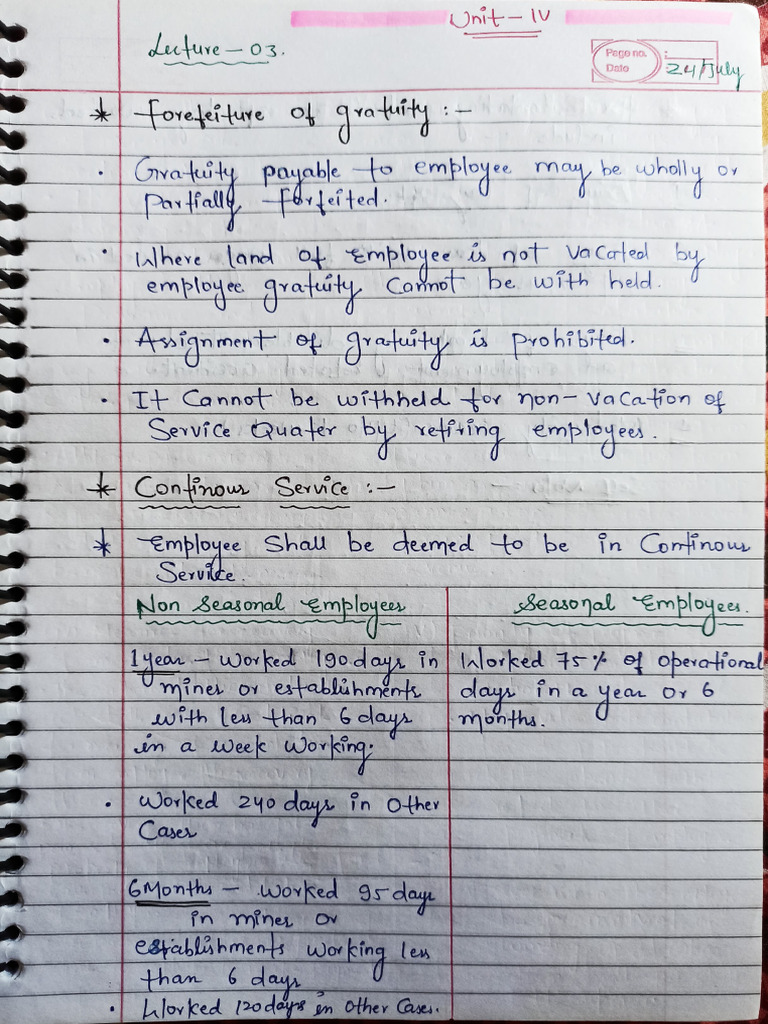 Unit - IV
Lecture - 03.
Page no. :
Date 24/July
* Forefeiture of gratuity :-
• Gratuity payable to employee may be wholly or
Partially forfeited.
• Where land of Employee is not vacated by
employee gratuity cannot be with held.
• Assignment of gratuity is prohibited.
• It cannot be withheld for non-vacation of
Service Quater by retiring employees.
* Continous Service :-
* Employee Shall be deemed to be in Continous
Service.
Non Seasonal Employees
1 year - Worked 190 days in
mines or establishments
with less than 6 days
in a week working.
• Worked 240 days in Other
Cases
6 Months - Worked 95 days
in mines or
establishments working less
than 6 days
• Worked 120 days in Other Cases.
Seasonal Employees.
Worked 75% of operational
days in a year or 6
months.